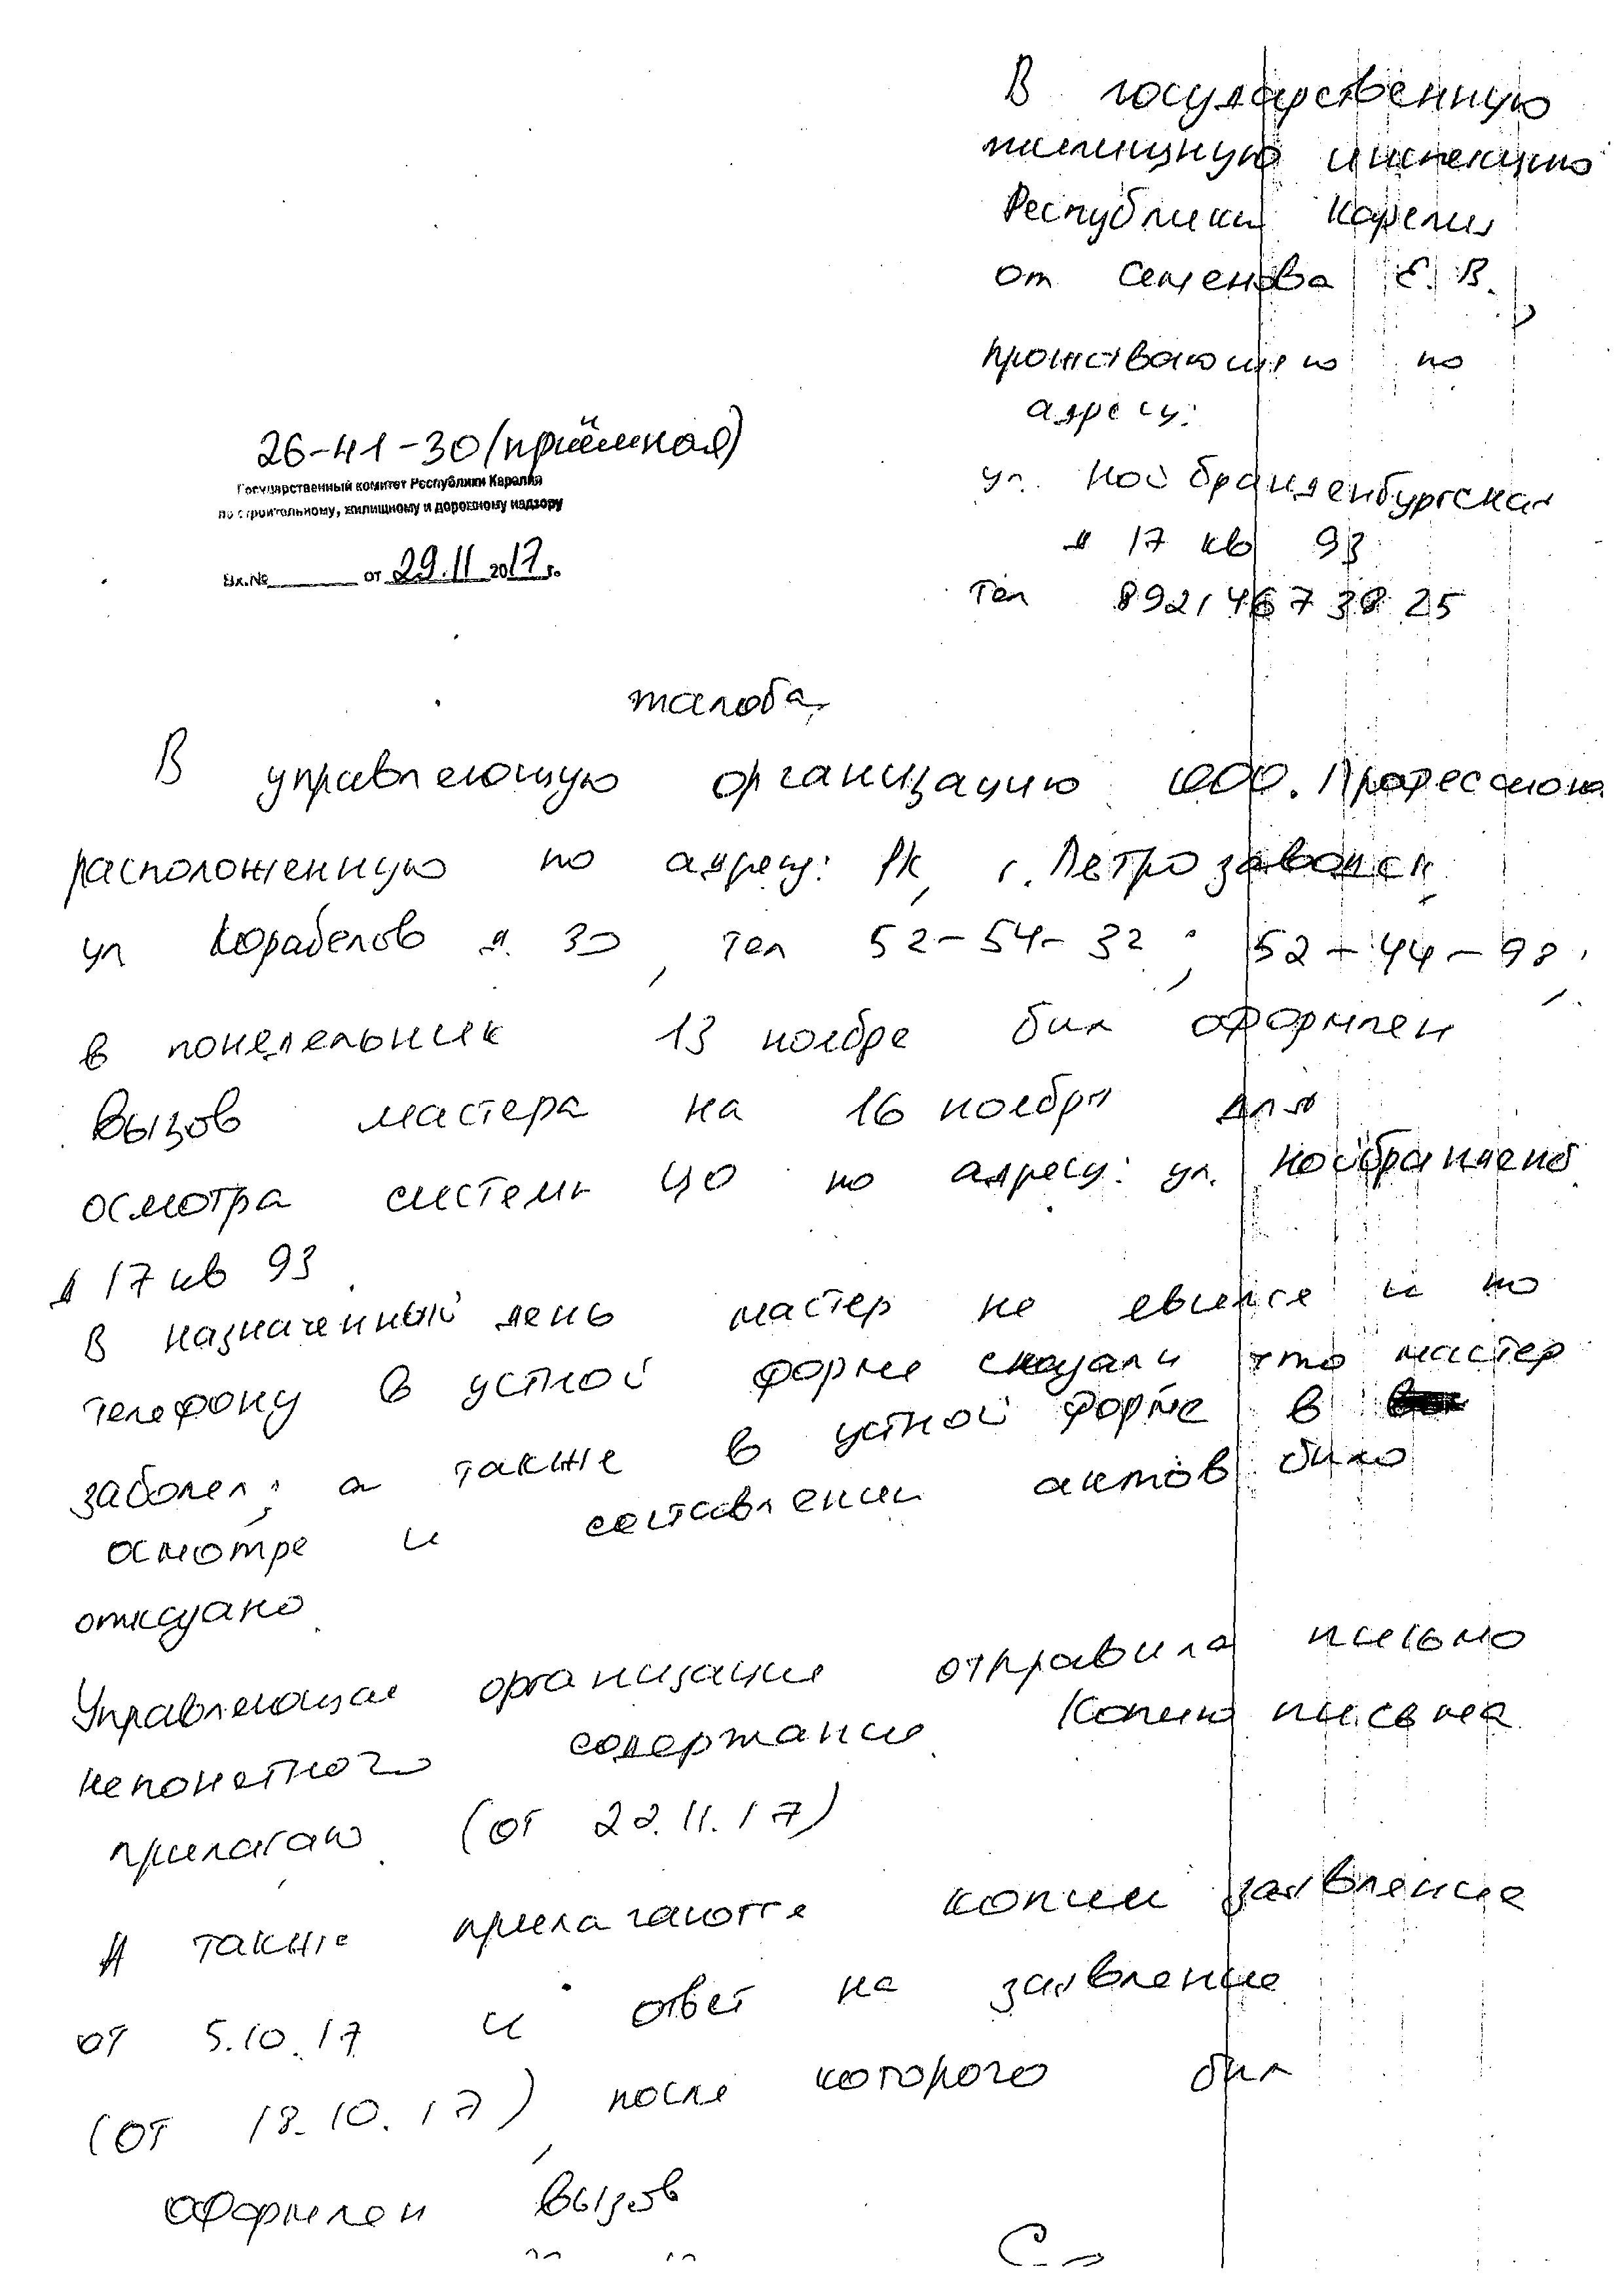 В государственную
жилищную инспекцию
Республики Карелия
от Семенова Е. В.
проживающего по
адресу:
26-41-30 (приёмная)
Государственный комитет Республики Карелия
по строительному, жилищному и дорожному надзору
Вх.№ от 29.11 2017 г.
ул. Нойбранденбургская
д 17 кв 93
Тел 8921 467 38 25
жалоба
В управляющую организацию ООО. Професссиона
расположенную по адресу: РК, г. Петрозаводск,
ул Корабелов д. 30, тел 52-54-32; 52-44-98,
в понедельник 13 ноебре бил оформлен
Вызов мастера на 16 ноебря для
осмотра системы ЦО по адресу: ул. Нойбранденб.
д 17 кв 93.
В назначенный день мастер не евилсе и по
телефону в устной форме сказали что мастер
заболел; а также в устной форме в
осмотре и составлении актов било
отказано.
Управляющае организацие отправила письмо
непонетного содержание. Копию письма
прилагаю. (от 22.11.17)
А также прилагаютсе копии заявление
от 5.10.17 и ответ на заявление
(от 18.10.17), после которого бил
оформлен вызов